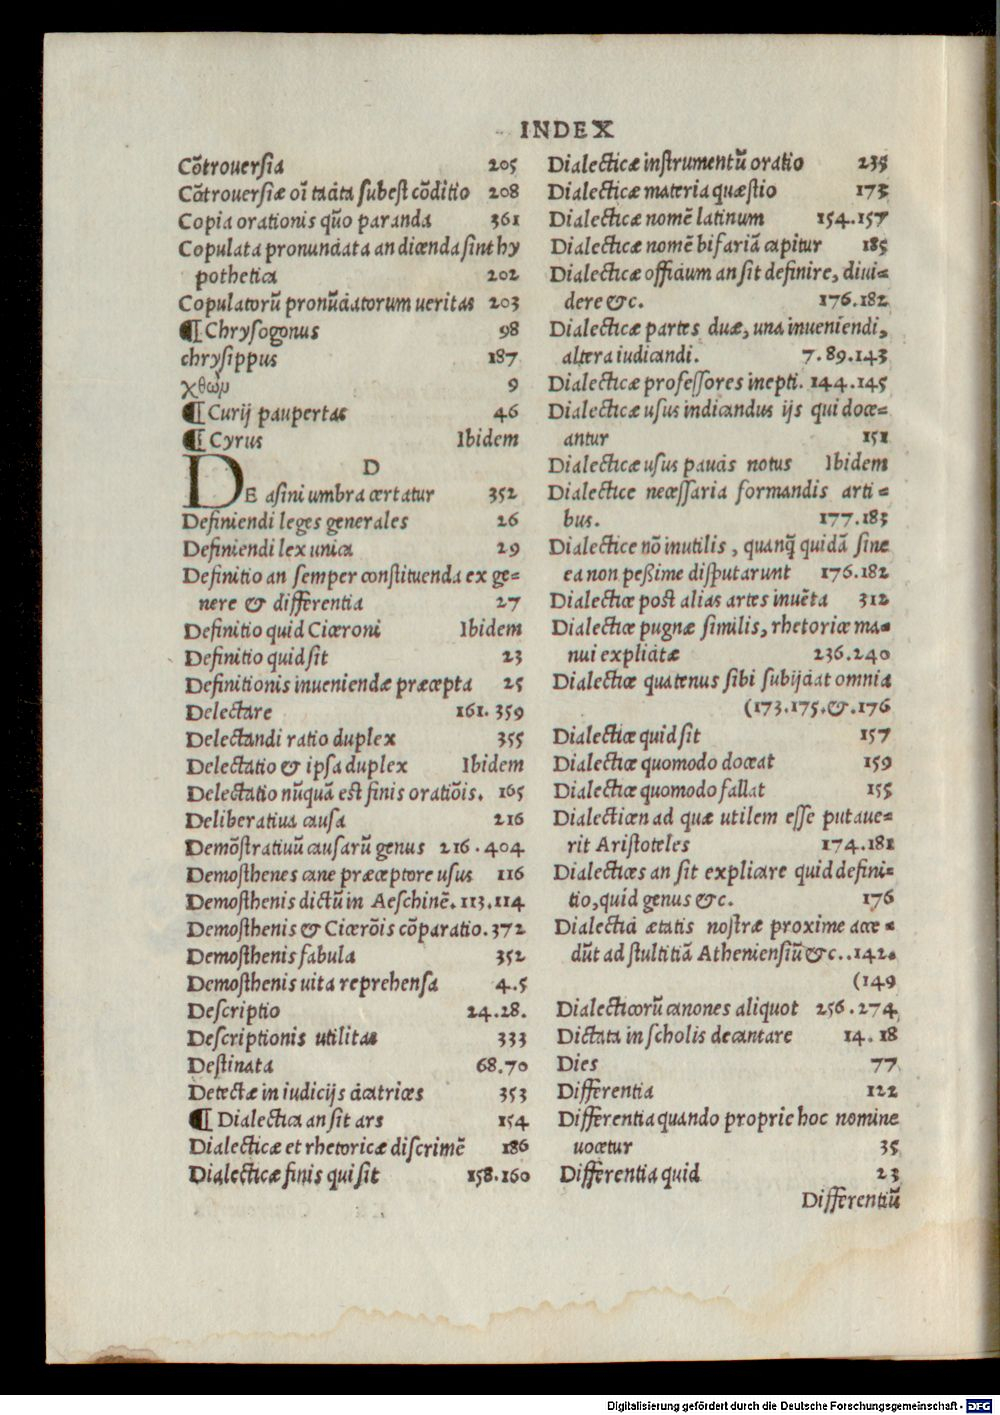 INDEX
Cõtrouersia 205
Cõtrouersiæ oĩ tacita subest cõditio 208
Copia orationis quõ paranda 361
Copulata pronunciata an dicenda sint hy
pothetica 202
Copulatorũ pronũciatorum ueritas 203
¶ Chrysogonus 98
chrysippus 187
9
¶ Curij paupertas 46
¶ Cyrus Ibidem
D
DE asini umbra certatur 352
Definiendi leges generales 26
Definiendi lex unica 29
Definitio an semper constituenda ex ge=
nere & differentia 27
Definitio quid Ciceroni Ibidem
Definitio quid sit 23
Definitionis inueniendæ præcepta 25
Delectare 161.359
Delectandi ratio duplex 355
Delectatio & ipsa duplex Ibidem
Delectatio nũquã est finis oratiõis. 165
Deliberatiua causa 216
Demõstratiuũ causarũ genus 216.404
Demosthenes cane præceptore usus 116
Demosthenis dictũ in Aeschinẽ. 113.114
Demosthenis & Cicerõis cõparatio. 372
Demosthenis fabula 352
Demosthenis uita reprehensa 4.5
Descriptio 24.28.
Descriptionis utilitas 333
Destinata 68.70
Detectæ in iudicijs cicatrices 353
¶ Dialectica an sit ars 154
Dialecticæ et rhetoricæ discrimẽ 186
Dialecticæ finis qui sit 158.160
Dialecticæ instrumentũ oratio 235
Dialecticæ materia quæstio 173
Dialecticæ nomẽ latinum 154.157
Dialecticæ nomẽ bifariã capitur 185
Dialecticæ officium an sit definire, diui=
dere &c. 176.182
Dialecticæ partes duæ, una inueniendi,
altera iudicandi. 7.89.143
Dialecticæ professores inepti. 144.145
Dialecticæ usus indicandus ijs qui doce=
antur 151
Dialecticæ usus paucis notus Ibidem
Dialectice necessaria formandis arti=
bus. 177.183
Dialectice nõ inutilis, quanq̃ quidã sine
ea non peßime disputarunt 176.182
Dialectice post alias artes inuẽta 312
Dialectice pugnæ similis, rhetorice ma=
nui explicitæ 236.240
Dialectice quatenus sibi subijciat omnia
(173.175.&.176
Dialectice quid sit 157
Dialectice quomodo doceat 159
Dialectice quomodo fallat 155
Dialecticen ad quæ utilem esse putaue=
rit Aristoteles 174.181
Dialectices an sit explicare quid defini=
tio, quid genus &c. 176
Dialectici ætatis nostræ proxime acce=
dũt ad stultitiã Atheniensiũ &c..142.
(149
Dialecticorũ canones aliquot 256.274
Dictata in scholis decantare 14.18
Dies 77
Differentia 122
Differentia quando proprie hoc nomine
uocetur 35
Differentia quid 23
Differentiũ
Digitalisierung gefördert durch die Deutsche Forschungsgemeinschaft - DFG